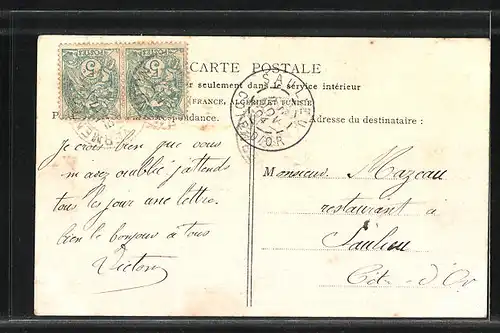 CARTE POSTALE
seulement dans le service intérieur
FRANCE, ALGÉRIE ET TUNISIE
correspondance. Adresse du destinataire :
5 5
SAULIEU
COTE-D'OR
Je crois bien que vous
m avez oublié j'attends
tous les jour une lettre
bien le bonjour à tous
Victor
Monsieur Mazeau
restaurant à
Saulieu
Côte-d'Or